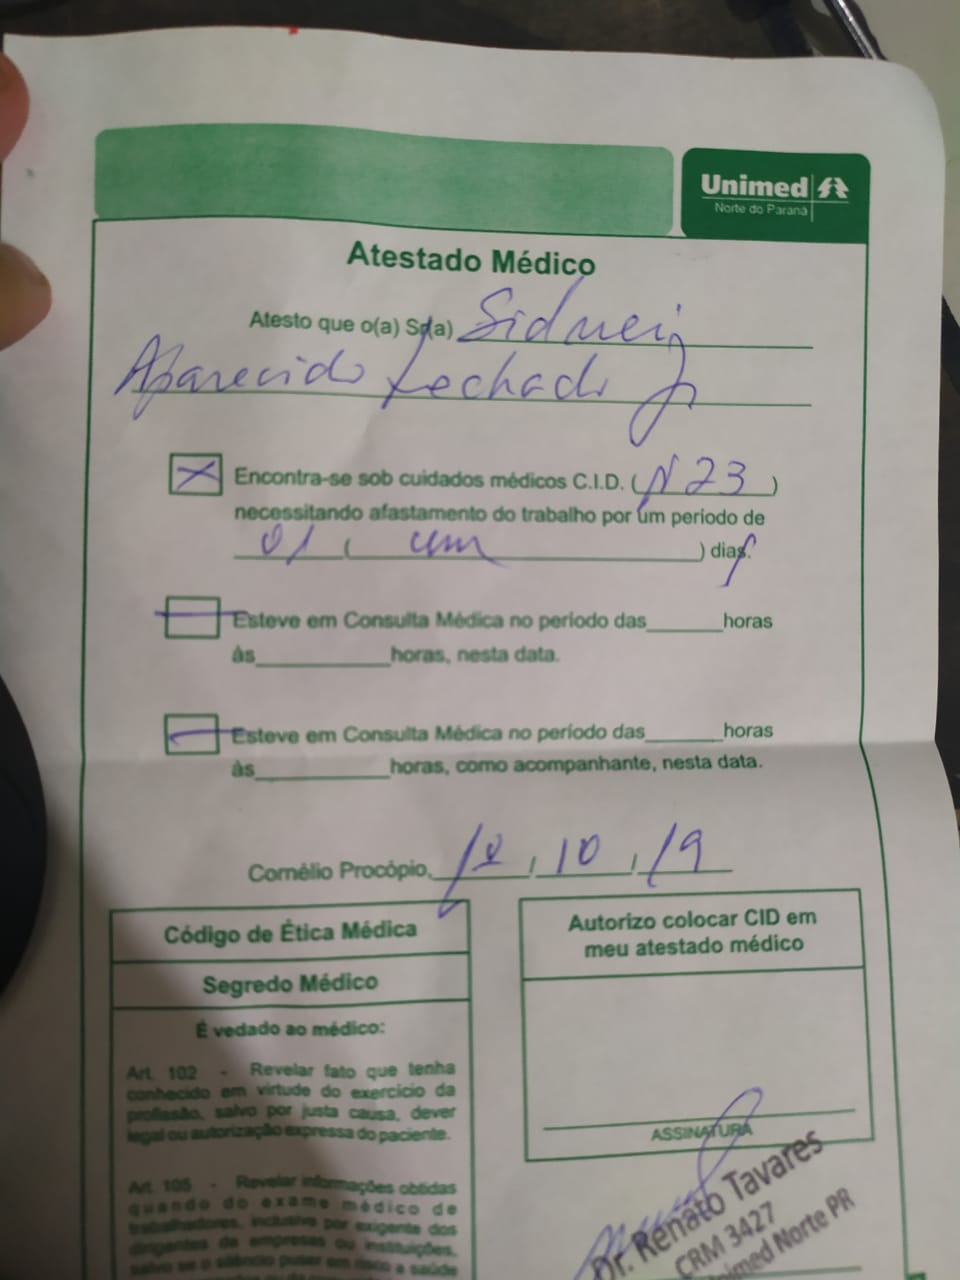 Unimed
Norte do Paraná
Atestado Médico
Atesto que o(a) Sr(a) Sidnei
Aparecido Fechado Jr
Encontra-se sob cuidados médicos C.I.D. ( N 23 )
necessitando afastamento do trabalho por um período de
01 ( um ) dias.
Esteve em Consulta Médica no período das______horas
às__________horas, nesta data.
Esteve em Consulta Médica no período das______horas
às__________horas, como acompanhante, nesta data.
Cornélio Procópio, 1º / 10 / 19
Código de Ética Médica
Segredo Médico
É vedado ao médico:
Art. 102 - Revelar fato que tenha
conhecido em virtude do exercício da
profissão, salvo por justa causa, dever
legal ou autorização expressa do paciente.
Art. 105 - Revelar informações obtidas
quando do exame médico de
trabalhadores, inclusive por exigente dos
dirigentes de empresas ou instituições,
salvo se o silêncio puser em risco a saúde
Autorizo colocar CID em
meu atestado médico
ASSINATURA
Dr. Renato Tavares
CRM 3427
Unimed Norte PR